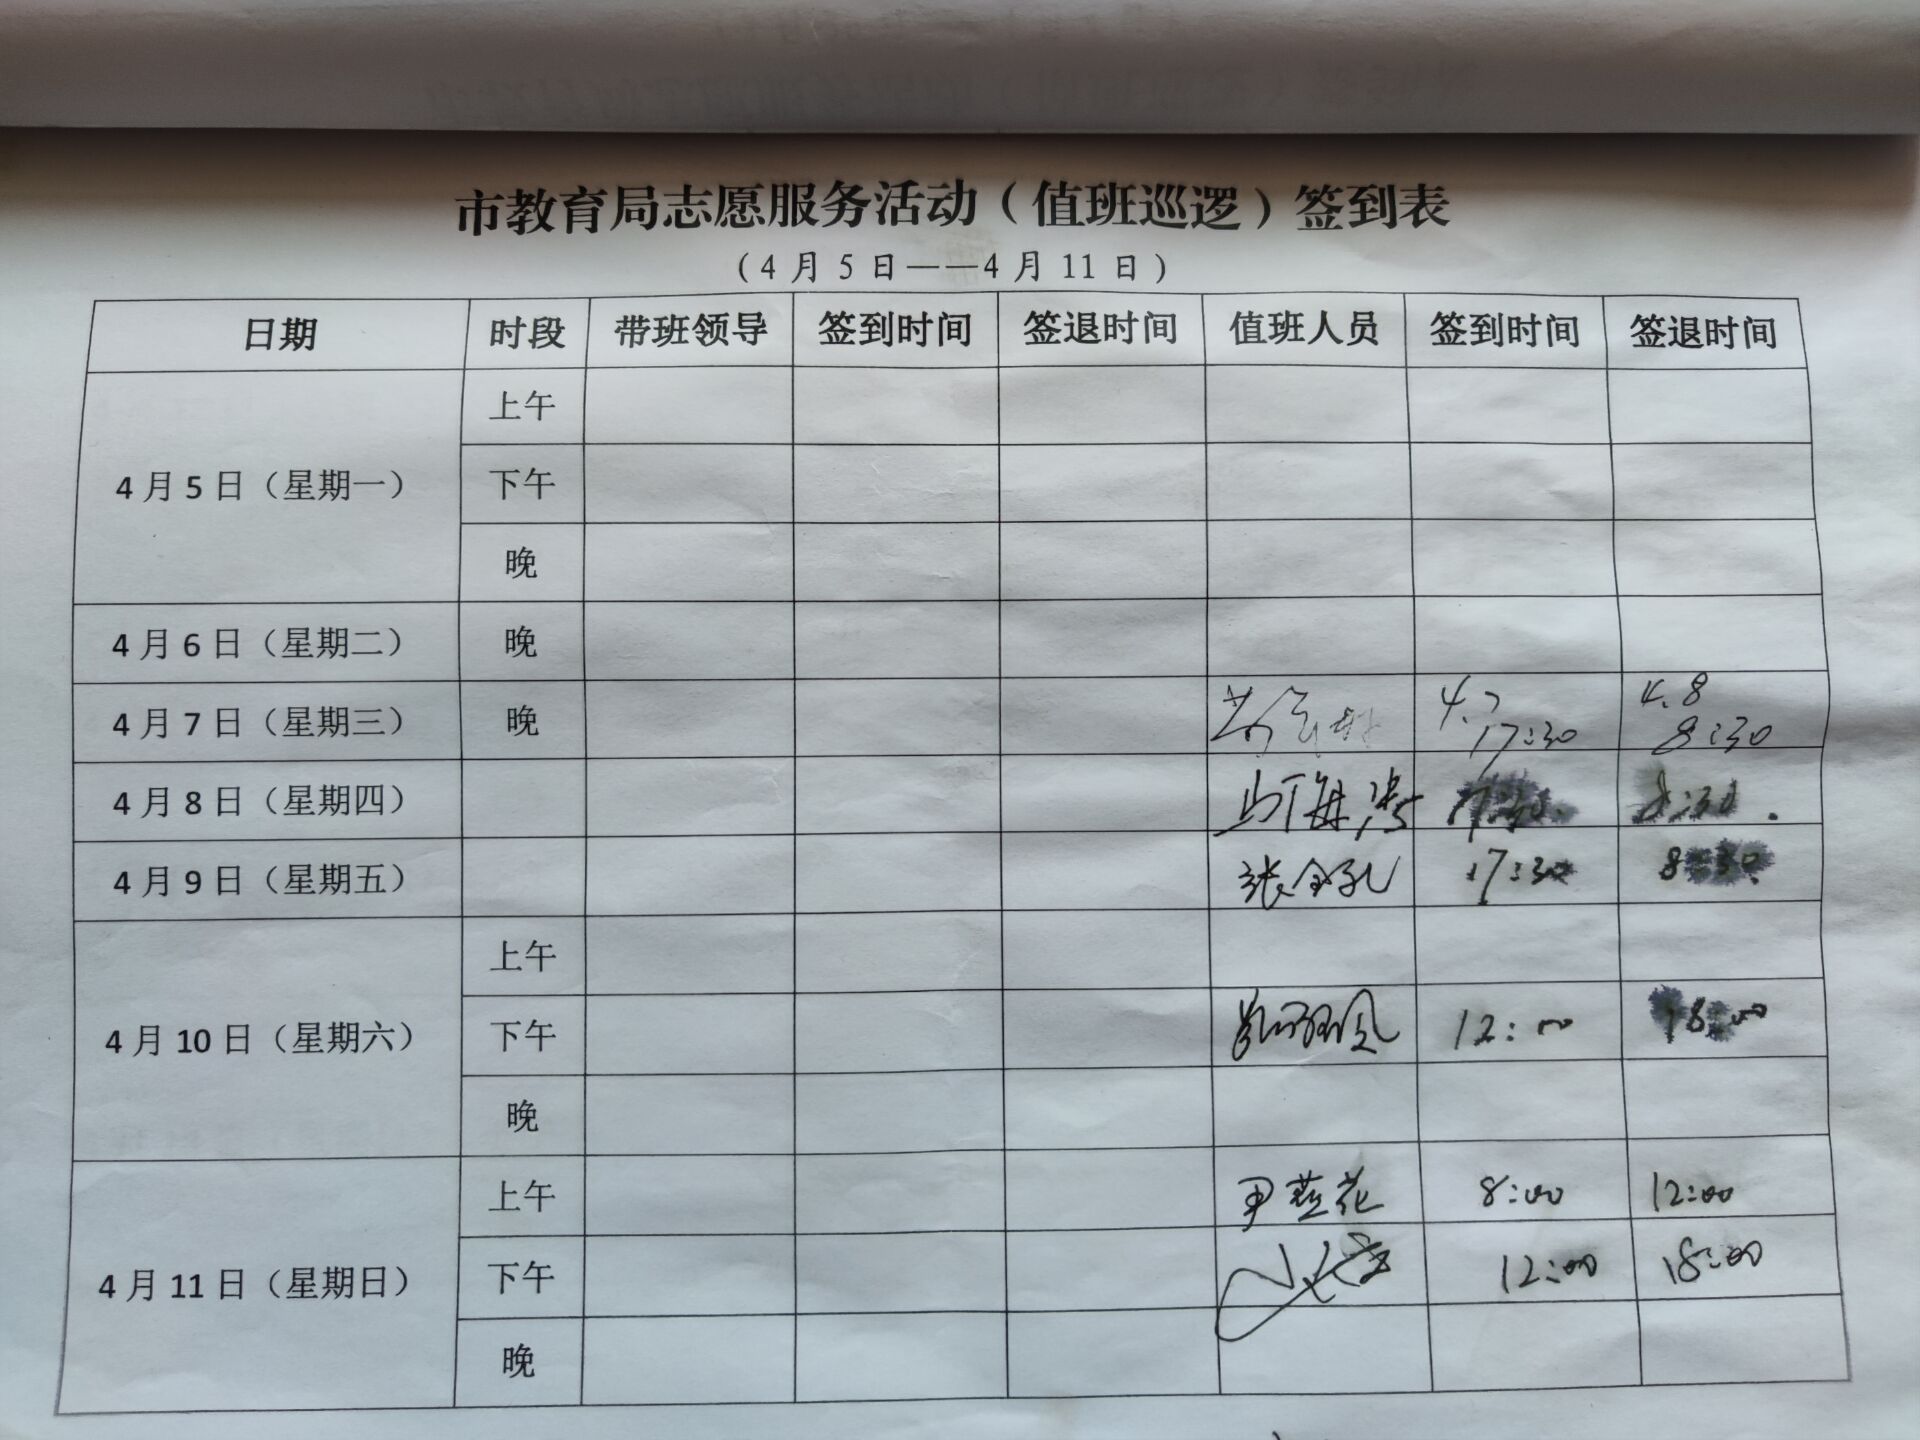 市教育局志愿服务活动（值班巡逻）签到表
（4月5日——4月11日）
日期 时段 带班领导 签到时间 签退时间 值班人员 签到时间 签退时间
4月5日（星期一） 上午
下午
晚
4月6日（星期二） 晚
4月7日（星期三） 晚 4.7 17:30 4.8 8:30
4月8日（星期四） 17:30. 8:30.
4月9日（星期五） 17:30 8:30
4月10日（星期六） 上午
下午 12:00 18:00
晚
4月11日（星期日） 上午 尹燕花 8:00 12:00
下午 12:00 18:00
晚